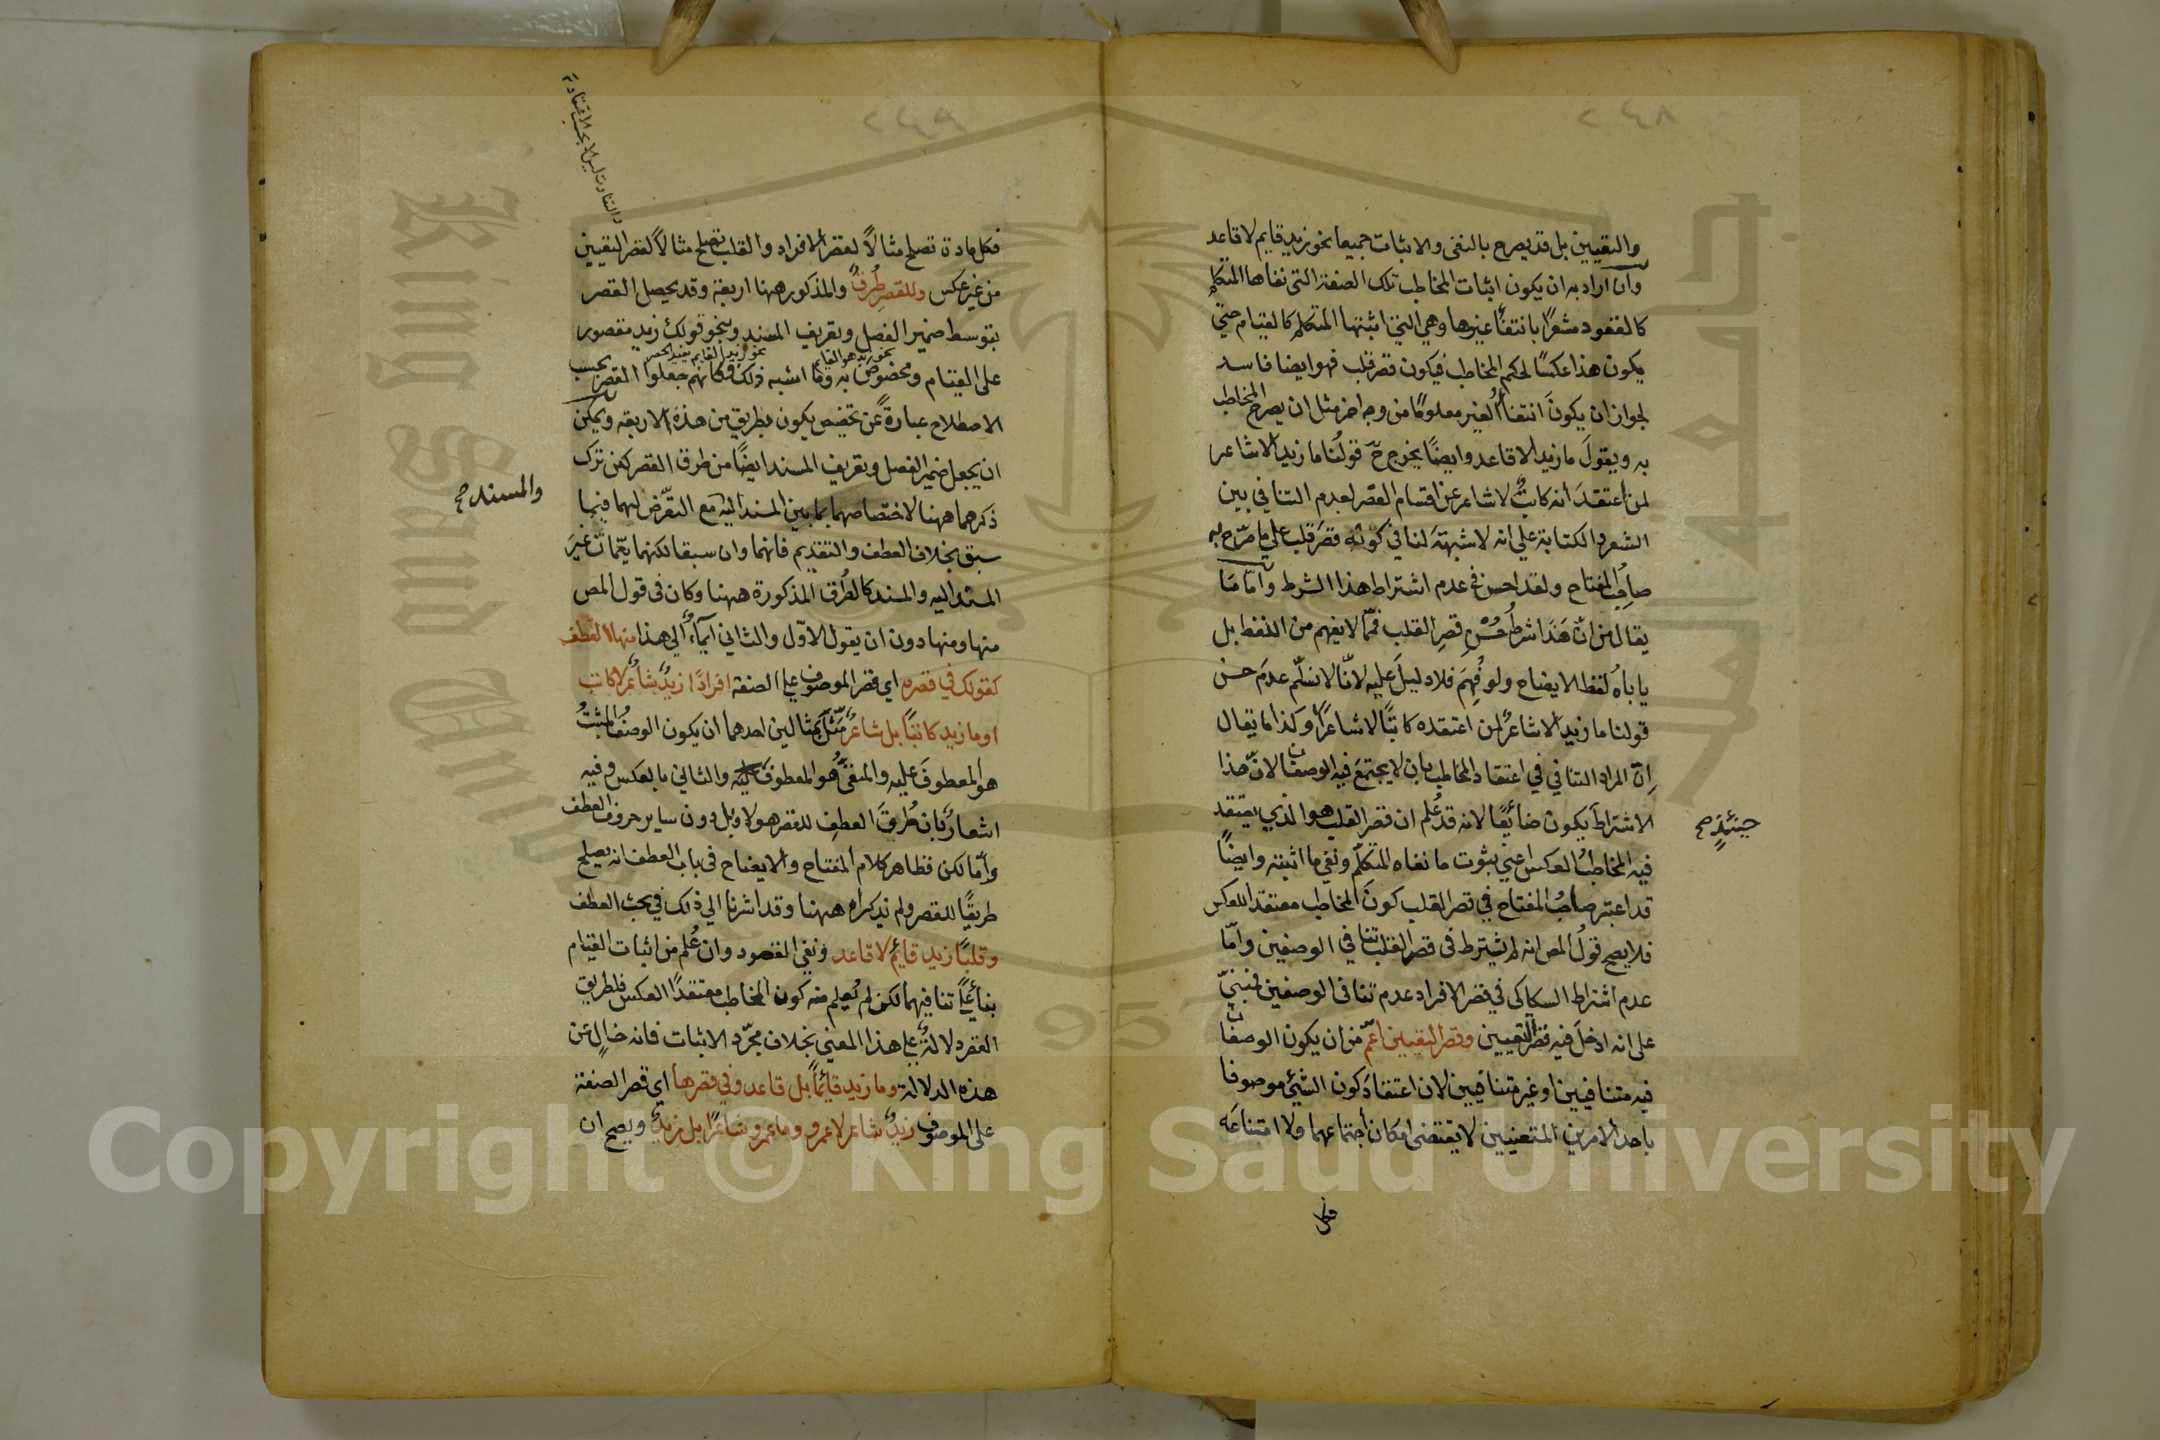 والتعيين بل قد يصرح بالنفى والاثبات جميعا نحو زيد قايم لا قاعد
وان اراد به ان يكون اثبات المخاطب تلك الصفة التى نفاها المتكلم
كالقعود مشعرًا بانتفاء غيرها وهي التي اثبتها المتكلم كالقيام حتي
يكون هذا عكسًا لحكم المخاطب فيكون قصر قلب فهو ايضا فاسد
لجواز ان يكونَ انتفاء الغير معلومًا من وجه اخر مثل ان يصرح المخاطب
به ويقولَ ما زيد الا قاعد وايضًا يخرج ح قولُنا ما زيد الا شاعر
لمن اعتقدَ انه كاتبٌ لا شاعر عن اقسام القصر لعدم التنافي بين
الشعر والكتابة علي انه لا شبهةَ لنا في كونه قصرَ قلب علي ما صرّح به
صاحبُ المفتاح ولقد احسن في عدم اشتراط هذا الشرط وامّا مَا
يقال من انّ هَذَا شرطُ حُسْنِ قصرِ القلب فمّما لا يفهم من اللفظ بل
ياباهُ لفظ الايضاح ولو فُهِمَ فلا دليلَ عليه لانّا لا نسلّم عدمَ حسن
قولنا ما زيد الا شاعرٌ لمن اعتقده كاتبًا لا شاعرًا وكذا ما يقال
اِنّ المراد التنافي في اعتقاد المخاطب بان لا يجتمعَ فيه الوصفان لانّ هذا
الاشتراطَ يكون ضائعًا لانه قد عُلم ان قصر القلب هو الذي يعتقد
فيه المخاطبُ العكس اعني ثبوت ما نفاه المتكلّم ونفي ما اثبته وايضًا
قد اعتبر صاحبُ المفتاح في قصر القلب كونَ المخاطب معتقد اللعكس
فلا يصح قولُ المص انه لم يشترط فى قصر القلب تنافي الوصفين وامّا
عدم اشتراط السكاكى في قصر الافراد عدم تنافى الوصفين فمبنيّ
على انه ادخلَ فيه قصر التعيين وقصر التعيين اعمّ من ان يكون الوصفان
فيه متنافيين او غير متنافيين لان اعتقادَ كون الشئ موصوفا
باحد الامرين المتعينين لا يقتضى امكان اجتماعهما ولا امتناعَه
حينئذٍ صح
فكل
فكل مادة تصلح مثالاً لقصر الافراد والقلب تصلح مثالاً لقصر التعيين
من غير عكس وللقصر طُرقٌ والمذكور ههنا اربعة وقد يحصل القصر
بتوسط ضمير الفصل وتعريف المسند وبنحو قولك زيد مقصور
نحو زيد هو القايم
نحو زيد القايم يفيد الحصر
على القيام ومخصوص به وما اشبه ذلك وكانهم جعلوا القصر بحسب
الاصطلاح عبارةً عن تخصيص يكون بطريق من هذه الاربعة ويمكن
ان يجعل ضمير الفصل وتعريف المسند ايضًا من طرق القصر لكن ترك
ذكرهما ههنا لاختصاصهما بما بين المسند اليه مع التعرّض لهما فيما
سبق بخلاف العطف والتقديم فانهما وان سبقا لكنهما يعمّان غيرَ
المسند اليه والمسند كالطُرق المذكورة ههنا وكان فى قول المص
منها ومنها دون ان يقول الاوّل والثاني ايماءٌ الي هذا منها العطف
كقولك في قصره اي قصر الموصوف علي الصفة افرادًا زيدٌ شاعرٌ لا كاتب
او ما زيد كاتبًا بل شاعرٌ مثّل بمثالين احدهما ان يكون الوصفُ المثبتُ
هو المعطوفَ عليه والمنفيُّ هو المعطوفَ عليه والثاني بالعكس وفيه
اشعارٌ بان طُرقَ العطفِ للقصر هو لا وبل دون ساير حروف العطف
وامّا لكن فظاهر كلام المفتاح والايضاح فى باب العطف انه يصلح
طريقًا للقصر ولم يذكراه ههنا وقد اشرنا الي ذلك في بحث العطف
وقلبًا زيد قايمٌ لا قاعد ونفي القعود وان عُلم من اثبات القيام
بناءً علي تنافيهما لكن لم يُعلم منه كون المخاطب معتقدًا العكس فلطريق
القصر دلالةٌ علي هذا المعني بخلاف مجرّد الاثبات فانه خالٍ عن
هذه الدلالة وما زيد قايمًا بل قاعد وفي قصرها اي قصر الصفة
على الموصوف زيدٌ شاعر لا عمرو وما عمرو شاعرًا بل زيدٌ ويصح ان
والمسند صح
Copyright © King Saud University
King Saud University
1957